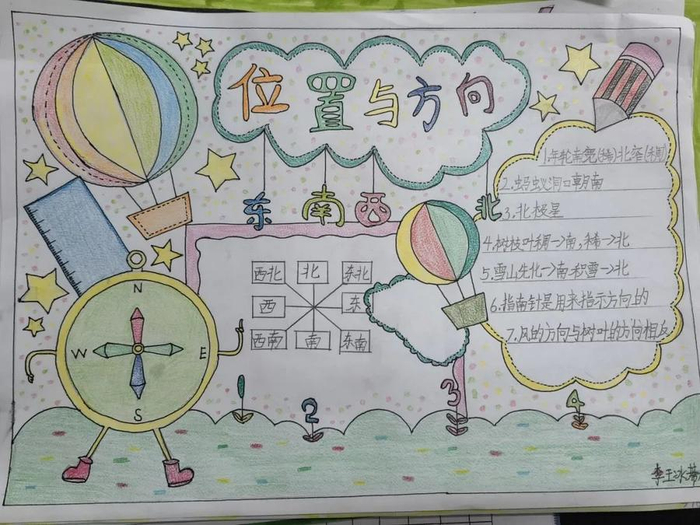 位置与方向
东南西北
1.年轮南宽(稀)北窄(稠)
2.蚂蚁洞口朝南
3.北极星
4.树枝叶稠→南,稀→北
5.雪山先北→南积雪→北
6.指南针是用来指示方向的
7.风的方向与树叶的方向相反
西北 北 东北
西 东
西南 南 东南
N
W E
S
1 2 3 4